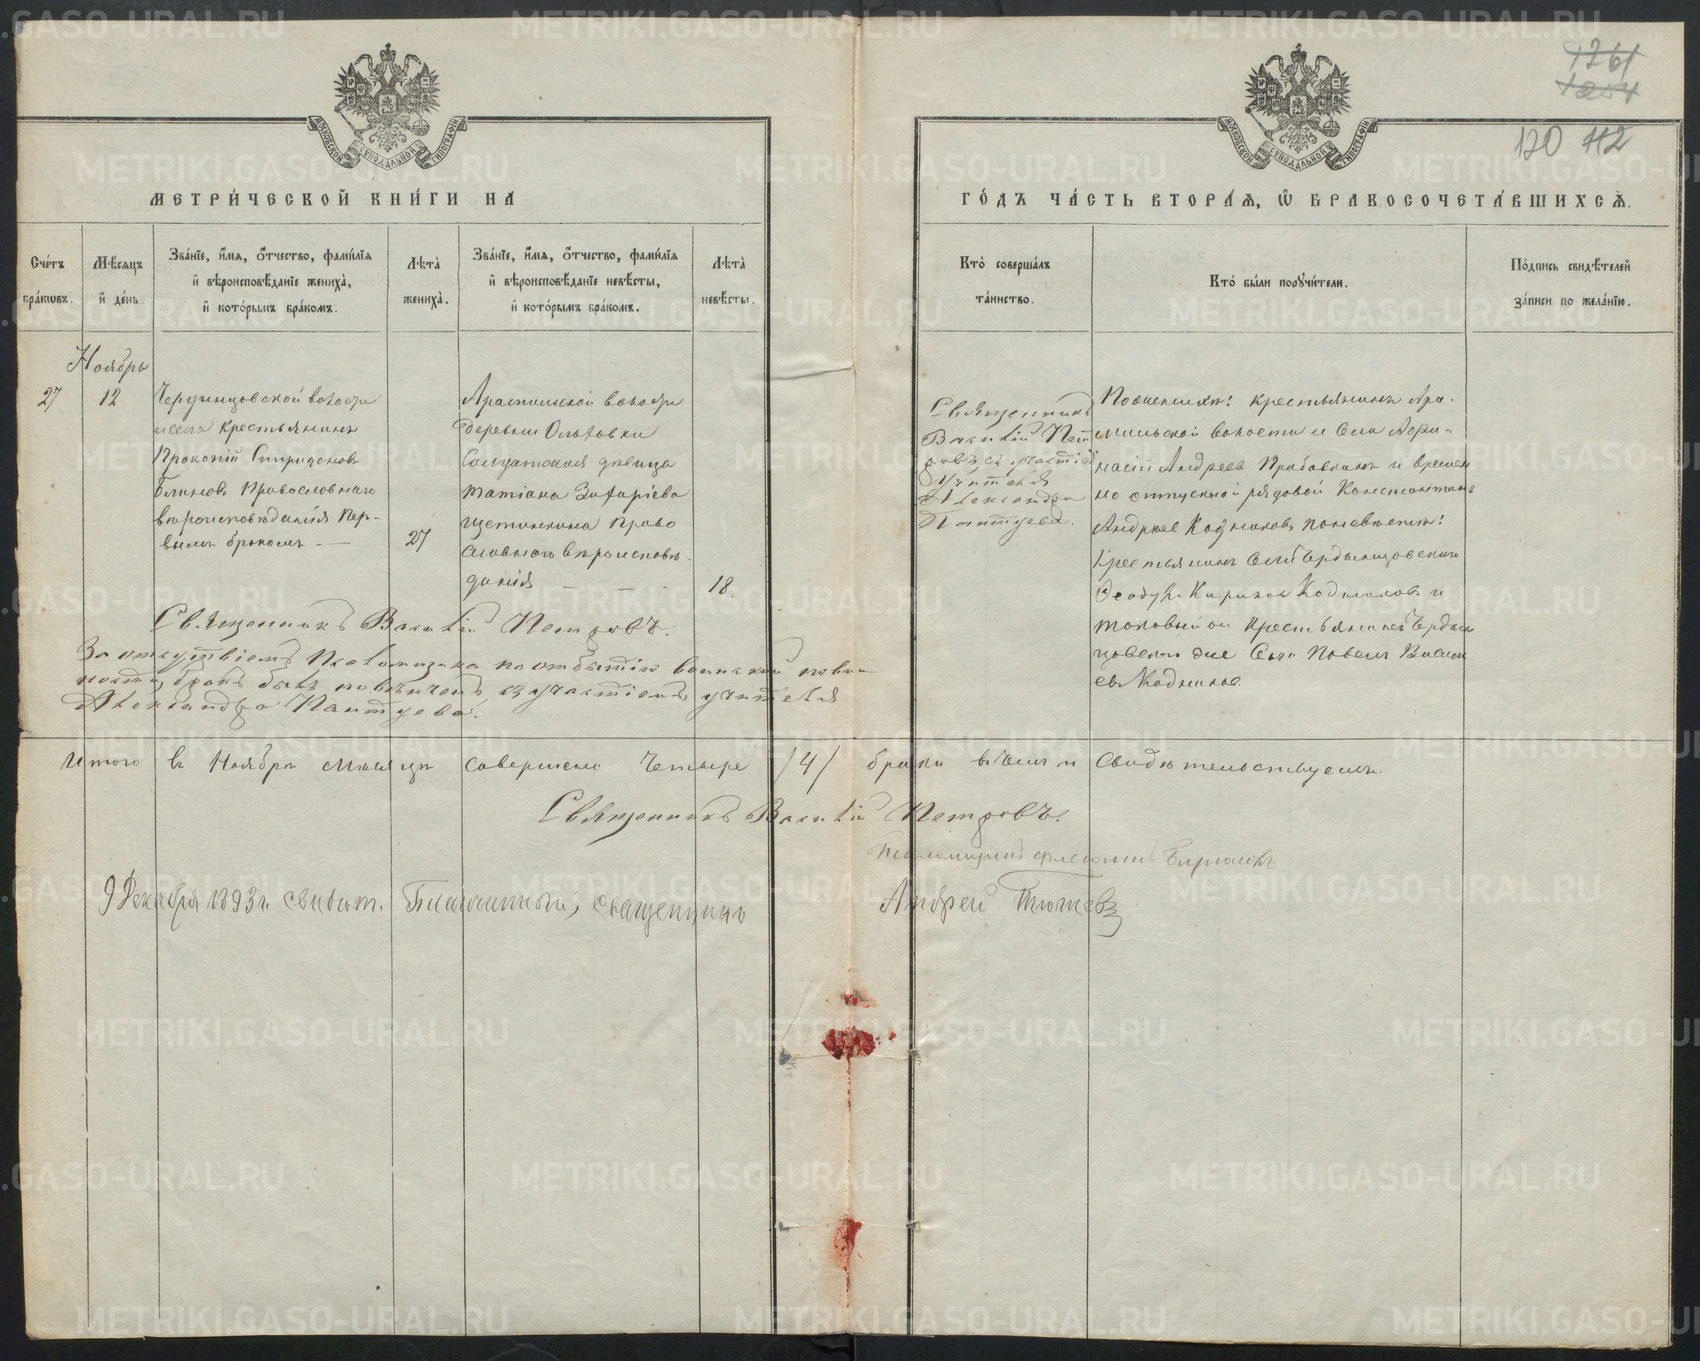 1261
1254
120 112
МОСКОВСКОЙ СѴНОДАЛЬНОЙ ТИПОГРАФІИ
МОСКОВСКОЙ СѴНОДАЛЬНОЙ ТИПОГРАФІИ
МЕТРИ́ЧЕСКОЙ КНИ́ГИ НА
ГО́ДЪ ЧА́СТЬ ВТОРА́Я, Ѡ БРАКОСОЧЕТА́ВШИХСѦ.
Сче́тъ бра́кѡвъ.
Мѣ́сяцъ и де́нь
Зва́нїе, и҆́мя, ѻ҆́тчество, фами́лїя и҆ вѣроисповѣ́данїе жениха̀, и҆ кото́рымъ бра́комъ.
Лѣ́та̀ жениха̀.
Зва́нїе, и҆́мя, ѻ҆́тчество, фами́лїя и҆ вѣроисповѣ́данїе невѣ́сты, и҆ кото́рымъ бра́комъ.
Лѣ́та̀ невѣ́сты.
Кто̀ соверша́лъ та́инство.
Кто̀ бы́ли поручи́тели.
По́дпись свидѣ́телей за́писи по жела́нїю.
Ноябрь
27
12
волости
села крестьянинъ
Прокопій Спиридоновъ
Блиновъ Православнаго
вѣроисповѣданія Пер-
вымъ бракомъ
27
Арамильской волости
деревни
Солдатская дѣвица
Татіана Захаріева
Щетинкина право
славнаго вѣроисповѣ
данія
18.
Священникъ
Василій Пет
ровъ съ участіемъ
Учителя
Александра
Пантуева.
По женихѣ: крестьянинъ Ара-
мильской волости и Села
Андреевъ и времен
но отпускной рядовой Константинъ
Андреевъ по невѣстѣ:
Крестьянинъ Села
и
таковый же Крестьянинъ
же Села Павелъ
Священникъ Василій Петровъ.
За отсутствіемъ Псаломщика по отбытію воинской повин
ности, бракъ былъ повѣнчанъ съ участіемъ учителя
Александра Пантуева.
Итого въ Ноябрѣ мѣсяцѣ совершено Четыре /4/ брака въ чемъ и Свидѣтельствуемъ.
Священникъ Василій Петровъ.
Псаломщикъ
9 Декабря 1893 г. свидѣт. Благочинный, священникъ
Андрей
METRIKI.GASO-URAL.RU